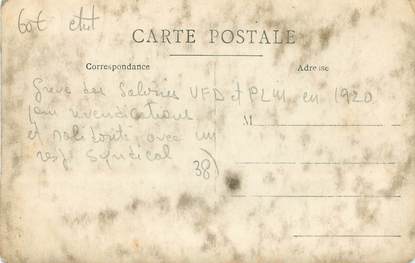 60€ état
CARTE POSTALE
Correspondance
Adresse
Grève des Salariés VFD et PLM en 1920
pour revendications
M
et solidarité avec un
resp Syndical
38)